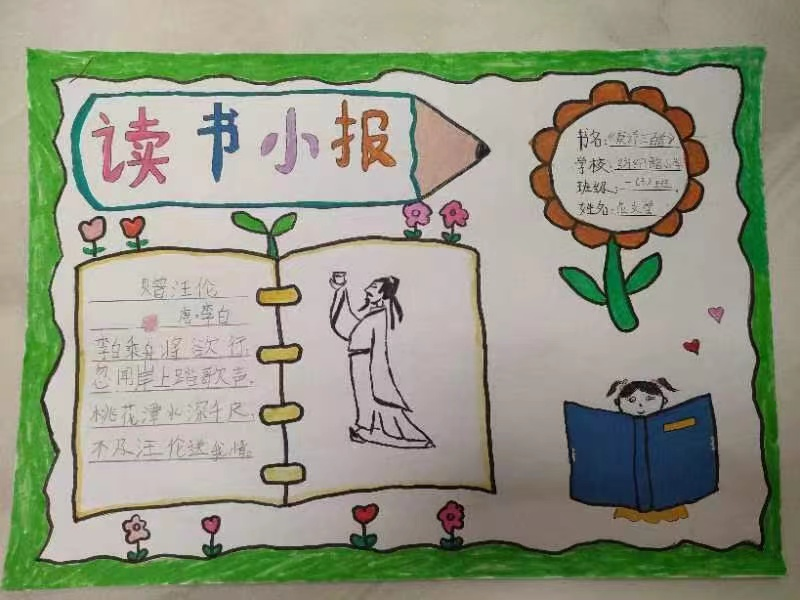 读书小报
书名:《唐诗三百首》
学校:
班级:一(3)班
姓名:
赠汪伦
唐·李白
李白乘舟将欲行
忽闻岸上踏歌声.
桃花潭水深千尺.
不及汪伦送我情。